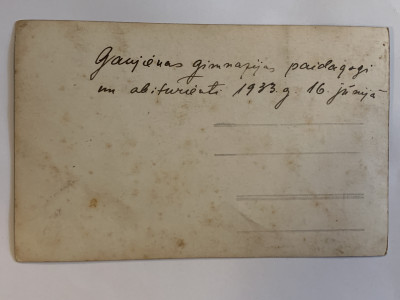 Gaujienas gimnazijas paidagogi
un abiturienti 1933.g 16. jūnijā